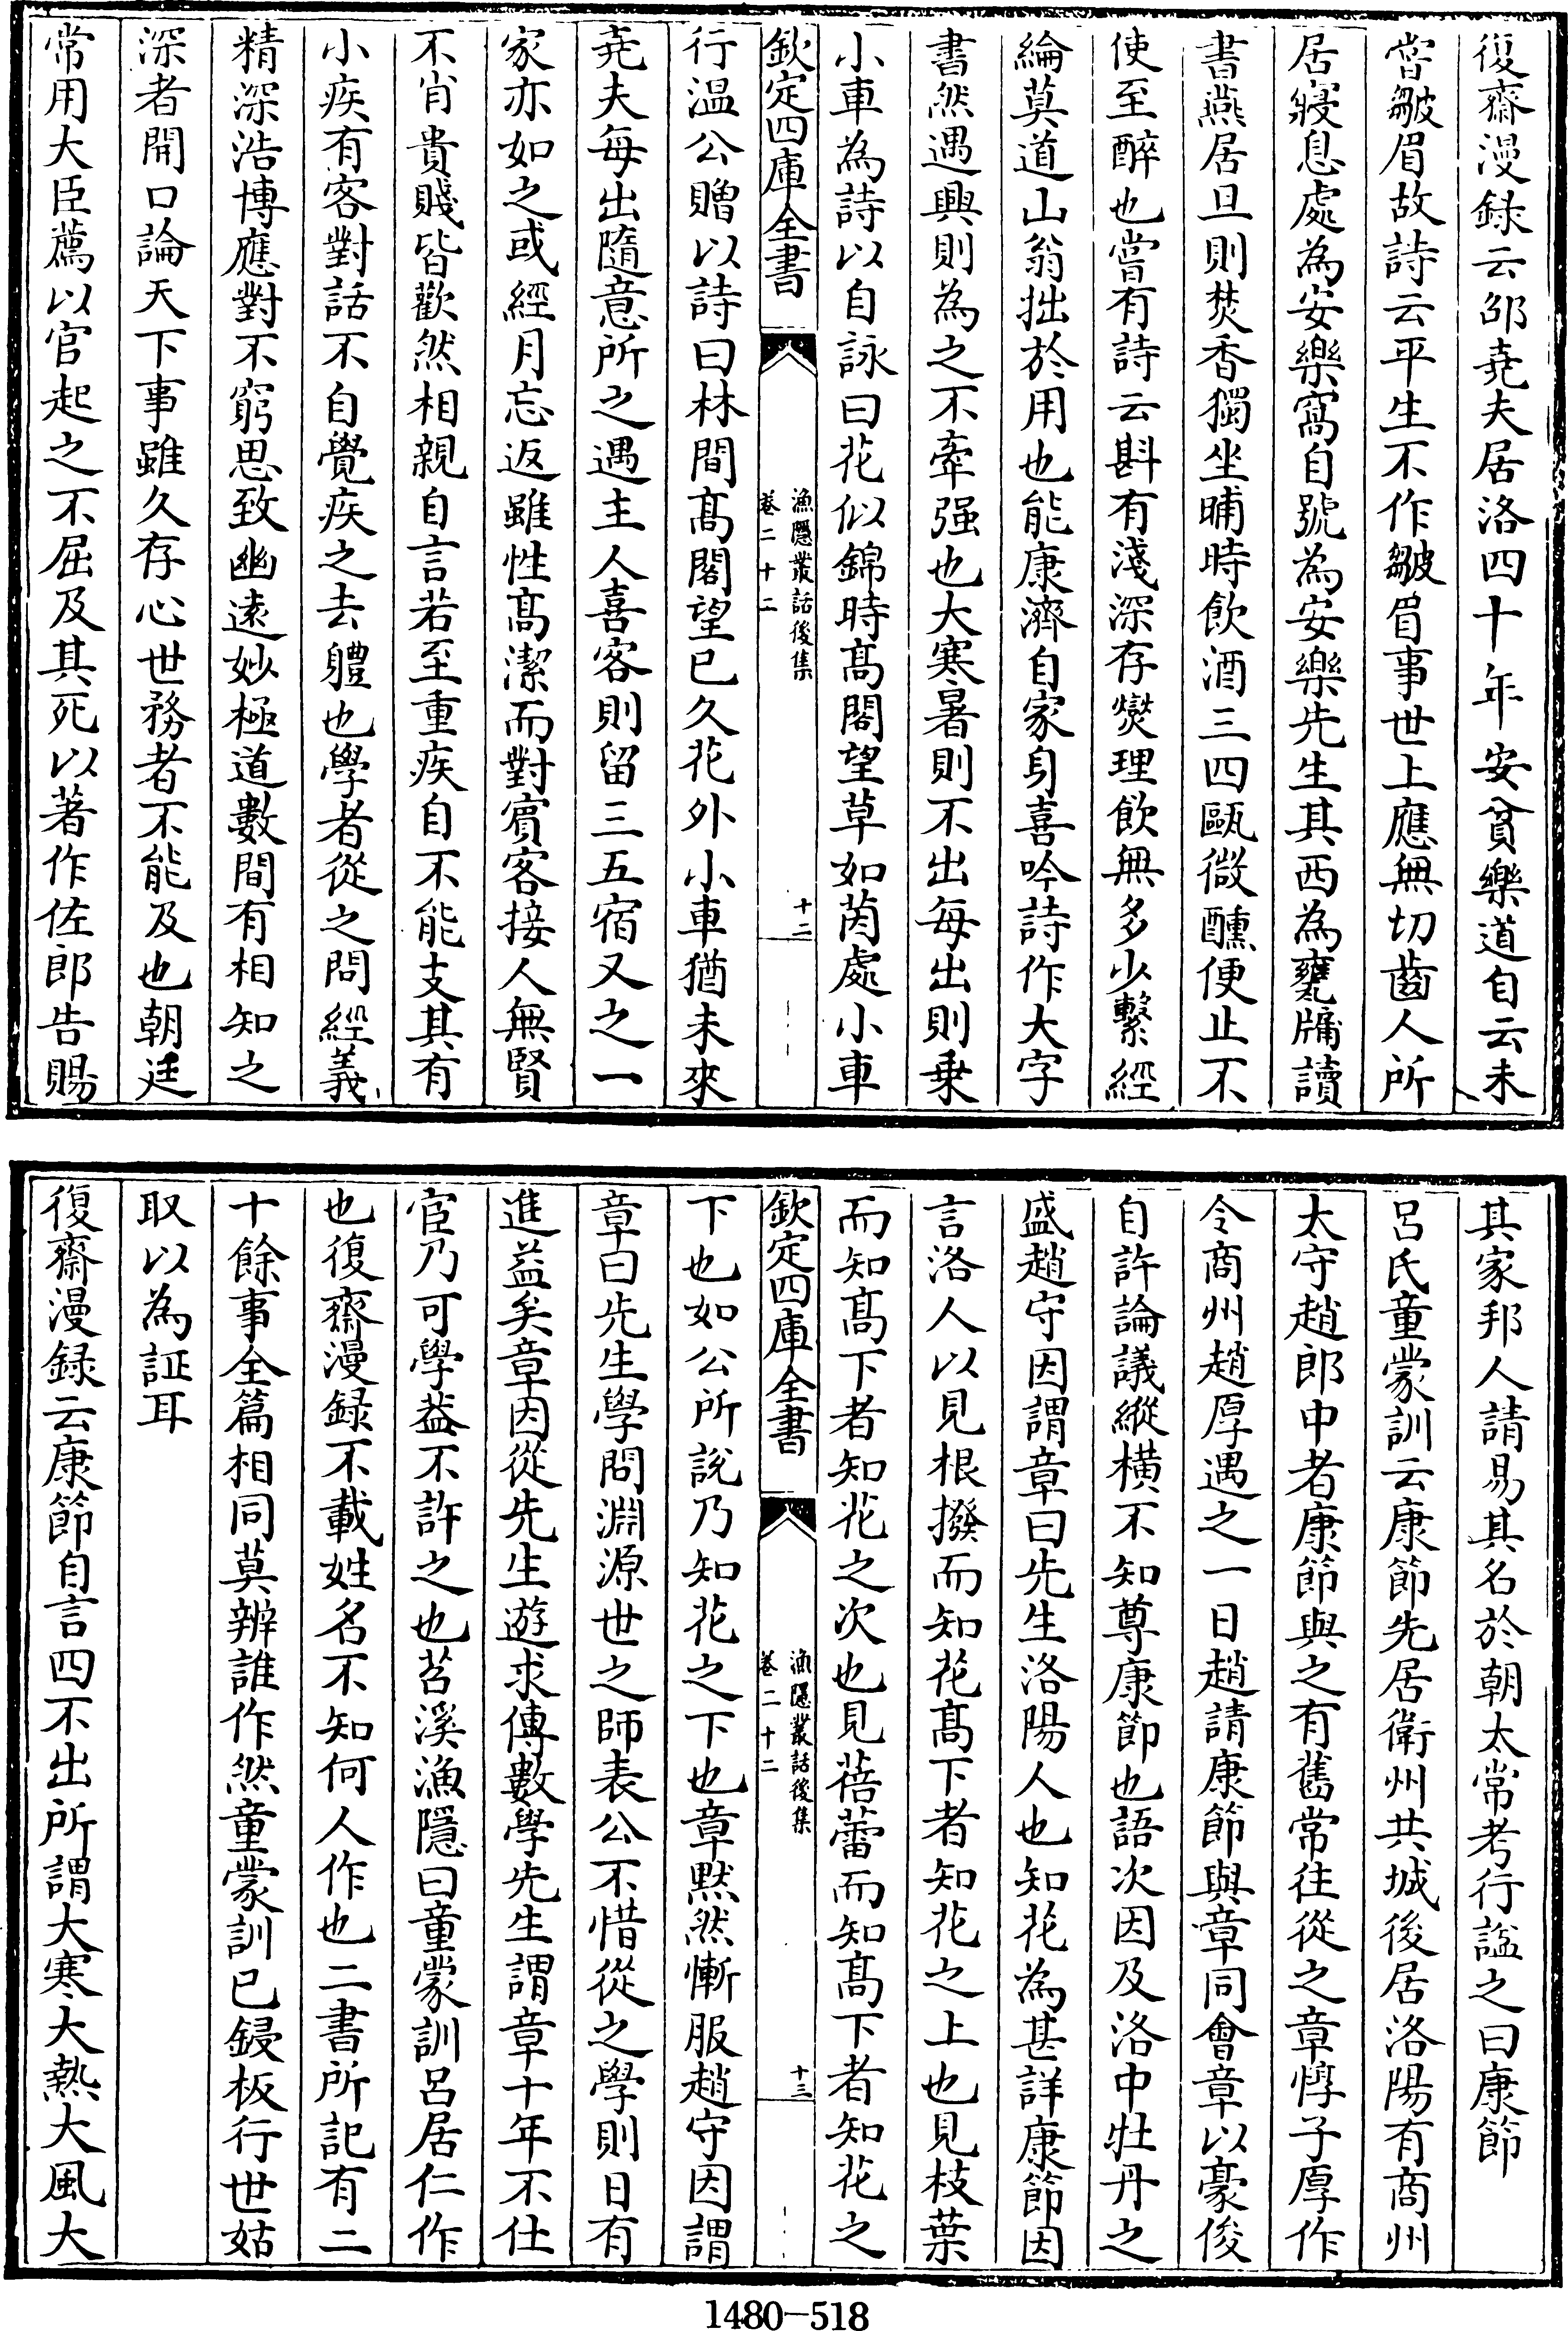 復齋漫録云邵堯夫居洛四十年安貧樂道自云未
甞皺眉故詩云平生不作皺眉事世上應無切齒人所
居寢息處為安樂窩自號為安樂先生其西為甕牖讀
書燕居旦則焚香獨坐晡時飲酒三四甌微醺便止不
使至醉也甞有詩云斟有淺深存爕理飲無多少繫經
綸莫道山翁拙於用也能康濟自家身喜吟詩作大字
書然遇興則為之不牽强也大寒暑則不出每出則乗
小車為詩以自詠曰花似錦時髙閣望草如茵處小車
欽定四庫全書
漁隱叢話後集
卷二十二
十二
行温公贈以詩曰林間髙閣望已久花外小車猶未來
堯夫每出隨意所之遇主人喜客則留三五宿又之一
家亦如之或經月忘返雖性髙潔而對賓客接人無賢
不肖貴賤皆歡然相親自言若至重疾自不能支其有
小疾有客對話不自覺疾之去體也學者從之問經義
精深浩博應對不窮思致幽逺妙極道數間有相知之
深者開口論天下事雖久存心世務者不能及也朝廷
常用大臣薦以官起之不屈及其死以著作佐郎告賜
其家邦人請易其名於朝太常考行諡之曰康節
吕氏童蒙訓云康節先居衛州共城後居洛陽有商州
太守趙郎中者康節與之有舊常往從之章惇子厚作
令商州趙厚遇之一日趙請康節與章同㑹章以豪俊
自許論議縱橫不知尊康節也語次因及洛中牡丹之
盛趙守因謂章曰先生洛陽人也知花為甚詳康節因
言洛人以見根撥而知花髙下者知花之上也見枝葉
而知髙下者知花之次也見蓓蕾而知髙下者知花之
欽定四庫全書
漁隱叢話後集
卷二十二
十三
下也如公所説乃知花之下也章黙然慚服趙守因謂
章曰先生學問淵源世之師表公不惜從之學則日有
進益矣章因從先生遊求傳數學先生謂章十年不仕
宦乃可學葢不許之也苕溪漁隱曰童蒙訓吕居仁作
也復齋漫録不載姓名不知何人作也二書所記有二
十餘事全篇相同莫辨誰作然童蒙訓已鋟板行世姑
取以為証耳
復齋漫録云康節自言四不出所謂大寒大熱大風大
1480-518